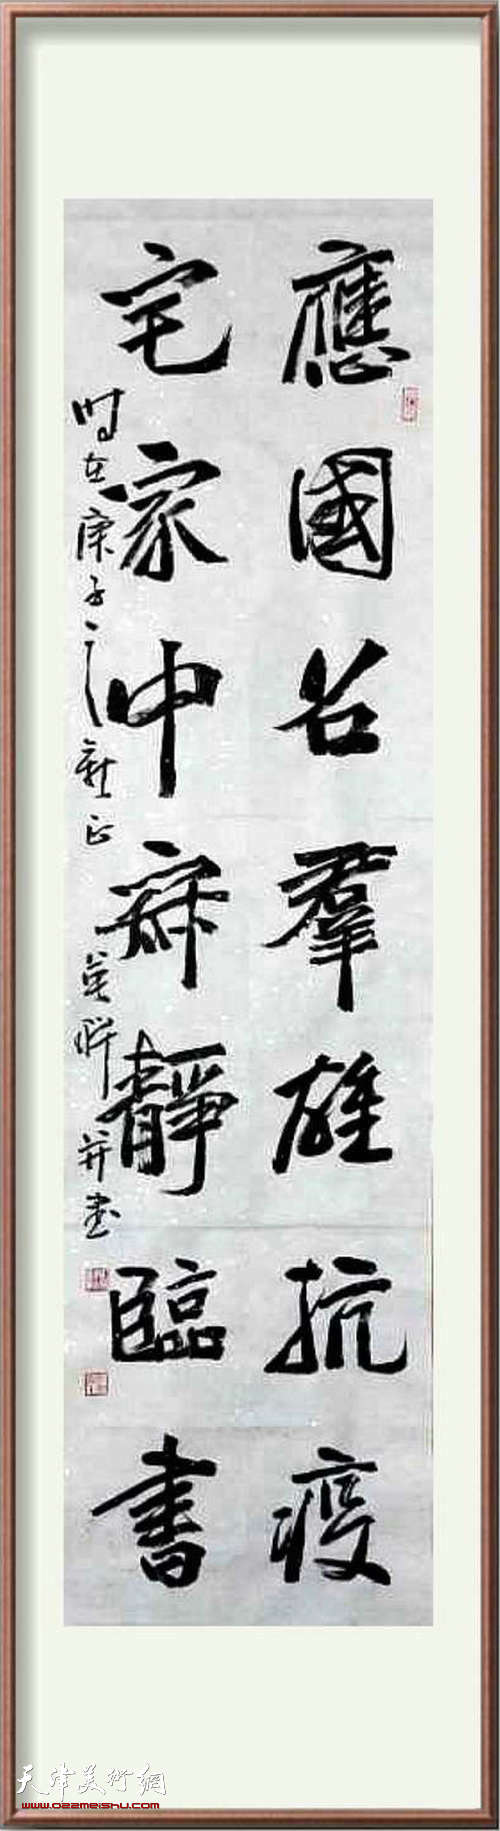 應國召羣雄抗疫
宅家中寂靜臨書
時在庚子之新正
英 并書
天津美術網
www.022meishu.com